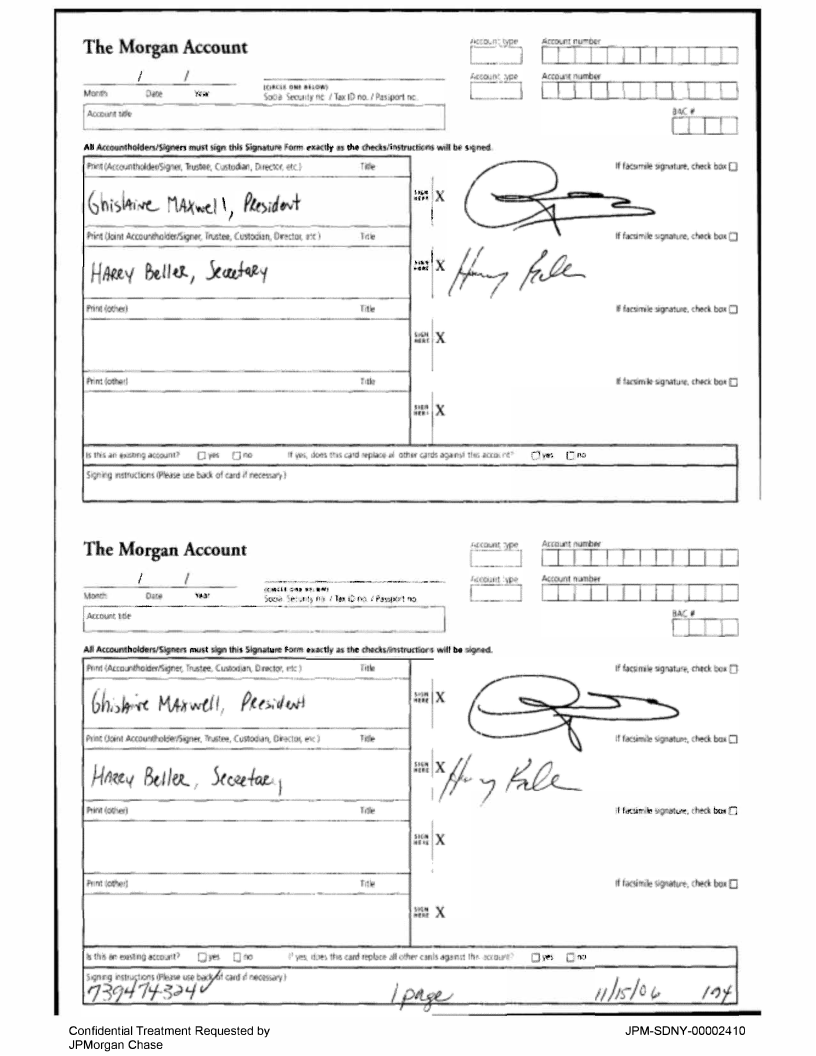 The Morgan Account
Account type Account number
/ /
Month Date Year
(CIRCLE ONE BELOW)
Social Security no. / Tax ID no. / Passport no.
Account type Account number
Account title
BAC #
All Accountholders/Signers must sign this Signature Form exactly as the checks/instructions will be signed.
Print (Accountholder/Signer, Trustee, Custodian, Director, etc.) Title
If facsimile signature, check box
Ghislaine Maxwell, President
SIGN HERE X
Print (Joint Accountholder/Signer, Trustee, Custodian, Director, etc.) Title
If facsimile signature, check box
Harry Beller, Secretary
SIGN HERE X
Print (other) Title
If facsimile signature, check box
SIGN HERE X
Print (other) Title
If facsimile signature, check box
SIGN HERE X
Is this an existing account? yes no If yes, does this card replace all other cards against this account? yes no
Signing instructions (Please use back of card if necessary)
The Morgan Account
Account type Account number
/ /
Month Date Year
(CIRCLE ONE BELOW)
Social Security no. / Tax ID no. / Passport no.
Account type Account number
Account title
BAC #
All Accountholders/Signers must sign this Signature Form exactly as the checks/instructions will be signed.
Print (Accountholder/Signer, Trustee, Custodian, Director, etc.) Title
If facsimile signature, check box
Ghislaine Maxwell, President
SIGN HERE X
Print (Joint Accountholder/Signer, Trustee, Custodian, Director, etc.) Title
If facsimile signature, check box
Harry Beller, Secretary
SIGN HERE X
Print (other) Title
If facsimile signature, check box
SIGN HERE X
Print (other) Title
If facsimile signature, check box
SIGN HERE X
Is this an existing account? yes no If yes, does this card replace all other cards against this account? yes no
Signing instructions (Please use back of card if necessary)
739474324 1 page 11/15/06
Confidential Treatment Requested by
JPMorgan Chase
JPM-SDNY-00002410